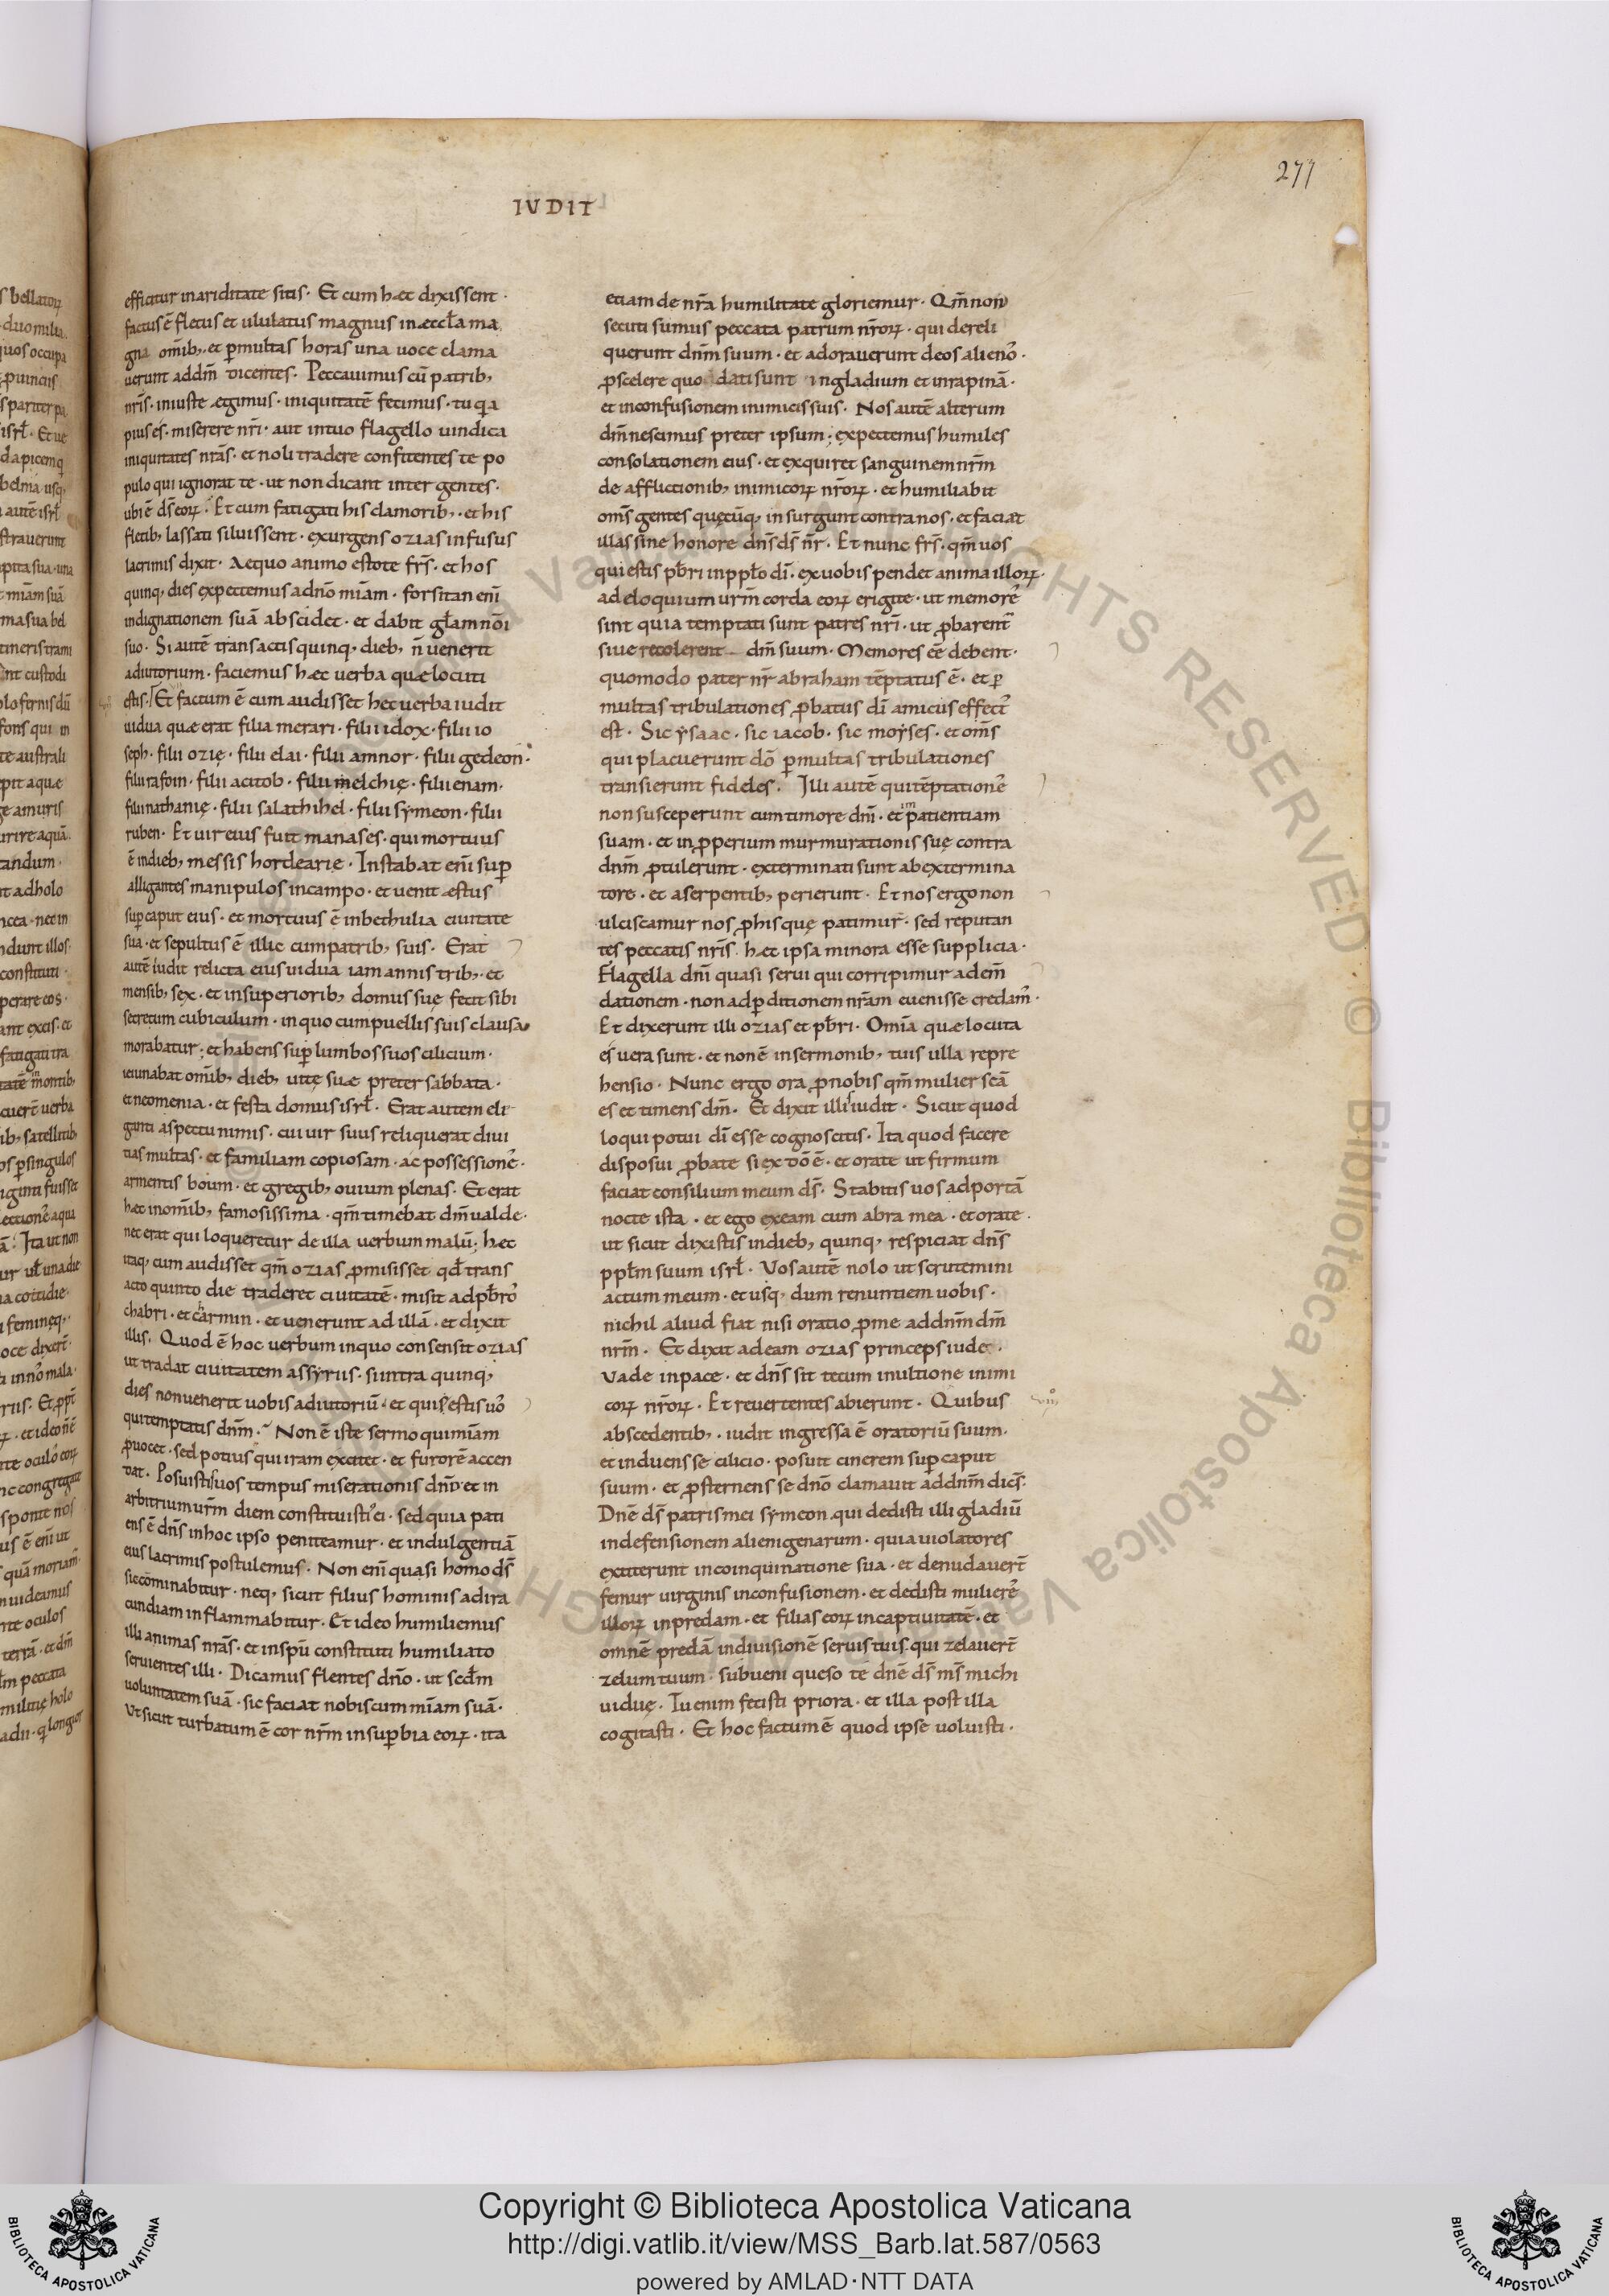 277
IVDIT
efficitur inariditate sitis · Et cum hæc dixissent ·
factus ē fletus et ululatus magnus inæccła ma
gna omīb; · et p̄multas horas una uoce clama
uerunt addm̄ dicentes · Peccauimus cū patrib;
nr̄is · iniuste egimus · iniquitatē fecimus · tu qa
pius es · miserere nr̄i · aut intuo flagello uindica
iniquitates nr̄as · et noli tradere confitentes te po
pulo qui ignorat te · ut non dicant inter gentes ·
ubi ē ds̄ eoꝝ · Et cum fatigati his clamorib; · et his
fletib; lassati siluissent · exurgens ozias infusus
lacrimis dixit · Aequo animo estote fr̄s · et hos
quinq; dies expectemus adno̅ mīam · forsitan enī
indignationem suā abscidet · et dabit gl̄am nōi
suo · Si autē transactis quinq; dieb; n̄ uenerit
adiutorium · faciemus hæc uerba quæ locuti
estis · Et factum ē cum audisset hec uerba iudit
uidua quæ erat filia merari · filii idox · filii io
seph · filii ozię · filii elai · filii amnor · filii gedeon ·
filii rafoin · filii acitob · filii melchię · filii enam ·
filii nathanię · filii salathihel · filii sẏmeon · filii
ruben · Et uir eius fuit manases · qui mortuus
ē indieb; messis hordearie · Instabat enī sup̄
alligantes manipulos incampo · et uenit æstus
sup̄ caput eius · et mortuus ē inbethulia ciuitate
sua · et sepultus ē illic cumpatrib; suis · Erat
autē iudit relicta eius uidua iam annis trib; · et
mensib; sex · et insuperiorib; domus suę fecit sibi
secretum cubiculum · in quo cumpuellis suis clausa
morabatur ; et habens sup̄ lumbos suos cilicium ·
ieiunabat omīb; dieb; uitę suæ preter sabbata ·
et neomenia · et festa domus isrł · Erat autem eli
ganti aspectu nimis · cui uir suus reliquerat diui
tias multas · et familiam copiosam · ac possessionē ·
armentis boum · et gregib; ouium plenas · Et erat
hæc inomīb; famosissima · qm̄ timebat dm̄ ualde ·
nec erat qui loqueretur de illa uerbum malū ; hæc
itaq; cum audisset qm̄ ozias p̱misisset qđ trans
acto quinto die traderet ciuitatē · misit adpb̄ro᷒
chabri · et charmin · et uenerunt ad illā · et dixit
illis · Quod ē hoc uerbum inquo consensit ozias
ut tradat ciuitatem assẏriis · si intra quinq;
dies non uenerit uobis adiutoriū · et qui estis uo᷒
qui temptatis dnm̄ · Non ē iste sermo qui mīam
p̱uocet · sed potius qui iram excitet · et furorē accen
dat · Posuistis uos tempus miserationis dnī · et in
arbitrium ur̄m diem constituisti᷒ ei · sed quia pati
ens ē dn̄s inhoc ipso peniteamur · et indulgentiā
eius lacrimis postulemus · Non enī quasi homo ds̄
sic cominabitur · neq; sicut filius hominis adira
cundiam inflammabitur · Et ideo humiliemus
illi animas nr̄as · et inspū constituti humiliato
seruientes illi · Dicamus flentes dn̄o · ut scđm
uoluntatem suā · sic faciat nobiscum mīam suā ·
Ut sicut turbatum ē cor nr̄m insup̄bia eoꝝ · ita
etiam de nr̄a humilitate gloriemur · Qm̄ non
secuti sumus peccata patrum nr̄oꝝ · qui dereli
querunt dnm̄ suum · et adorauerunt deos alieno᷒ ·
p̱ scelere quo dati sunt ingladium et inrapinā ·
et inconfusionem inimicis suis · Nos autē alterum
dm̄ nescimus preter ipsum ; expectemus humiles
consolationem eius · et exquiret sanguinem nr̄m
de afflictionib; inimicoꝝ nr̄oꝝ · et humiliabit
oms̄ gentes quęcūq; insurgunt contra nos · et faciat
illas sine honore dn̄s ds̄ nr̄ · Et nunc fr̄s · qm̄ uos
qui estis pb̄ri inpplo̅ dī · ex uobis pendet anima illoꝝ ·
ad eloquium ur̄m corda eoꝝ erigite · ut memore᷒
sint quia temptati sunt patres nr̄i · ut p̱barent᷑
siue recolerent dm̄ suum · Memores eē debent ·
quomodo pater nr̄ abraham tēptatus ē · et p̄
multas tribulationes p̱batus dī amicus effect᷒
est · Sic ẏsaac · sic iacob · sic moẏses · et oms̄
qui placuerunt dō p̄ multas tribulationes
transierunt fideles · Illi autē qui tēptatione᷒
non susceperunt cum timore dnī · et impatientiam
suam · et inp̱perium murmurationis suę contra
dnm̄ p̱tulerunt · exterminati sunt ab extermina
tore · et a serpentib; perierunt · Et nos ergo non
ulciscamur nos p̱ his quę patimur · sed reputan
tes peccatis nr̄is · hæc ipsa minora esse supplicia ·
Flagella dnī quasi serui qui corripimur adem̄
dationem · non adp̄ditionem nr̄am euenisse credam᷒ ·
Et dixerunt illi ozias et pb̄ri · Omīa quæ locuta
es uera sunt · et non ē insermonib; tuis ulla repre
hensio · Nunc ergo ora p̱ nobis qm̄ mulier scā
es et timens dm̄ · Et dixit illis iudit · Sicut quod
loqui potui dī esse cognoscitis · Ita quod facere
disposui p̱bate si ex dō ē · et orate ut firmum
faciat consilium meum ds̄ · Stabitis uos adportā
nocte ista · et ego exeam cum abra mea · et orate ·
ut sicut dixistis indieb; quinq; respiciat dn̄s
pplm̄ suum isrł · Vos autē nolo ut scrutemini
actum meum · et usq; dum renuntiem uobis ·
nichil aliud fiat nisi oratio p̱ me addnm̄ dm̄
nr̄m · Et dixit adeam ozias princeps iudę ·
Vade inpace · et dn̄s sit tecum inultione inimi
coꝝ nr̄oꝝ · Et reuertentes abierunt · Quibus
abscedentib; · iudit ingressa ē oratoriū suum ·
et induens se cilicio · posuit cinerem sup̄ caput
suum · et p̱sternens se dn̄o clamauit addnm̄ dics̄ ·
Dnē ds̄ patris mei sẏmeon qui dedisti illi gladiū
indefensionem alienigenarum · quia uiolatores
extiterunt incoinquinatione sua · et denudauert̄
femur uirginis inconfusionem · et dedisti muliere᷒
illoꝝ inpredam · et filias eoꝝ incaptiuitatē · et
omnē predā indiuisionē seruis tuis qui zelauert̄
zelum tuum · subueni queso te dnē ds̄ ms̄ michi
uiduę · Tu enim fecisti priora · et illa post illa
cogitasti · Et hoc factum ē quod ipse uoluisti ·
Copyright © Biblioteca Apostolica Vaticana
http://digi.vatlib.it/view/MSS_Barb.lat.587/0563
powered by AMLAD·NTT DATA